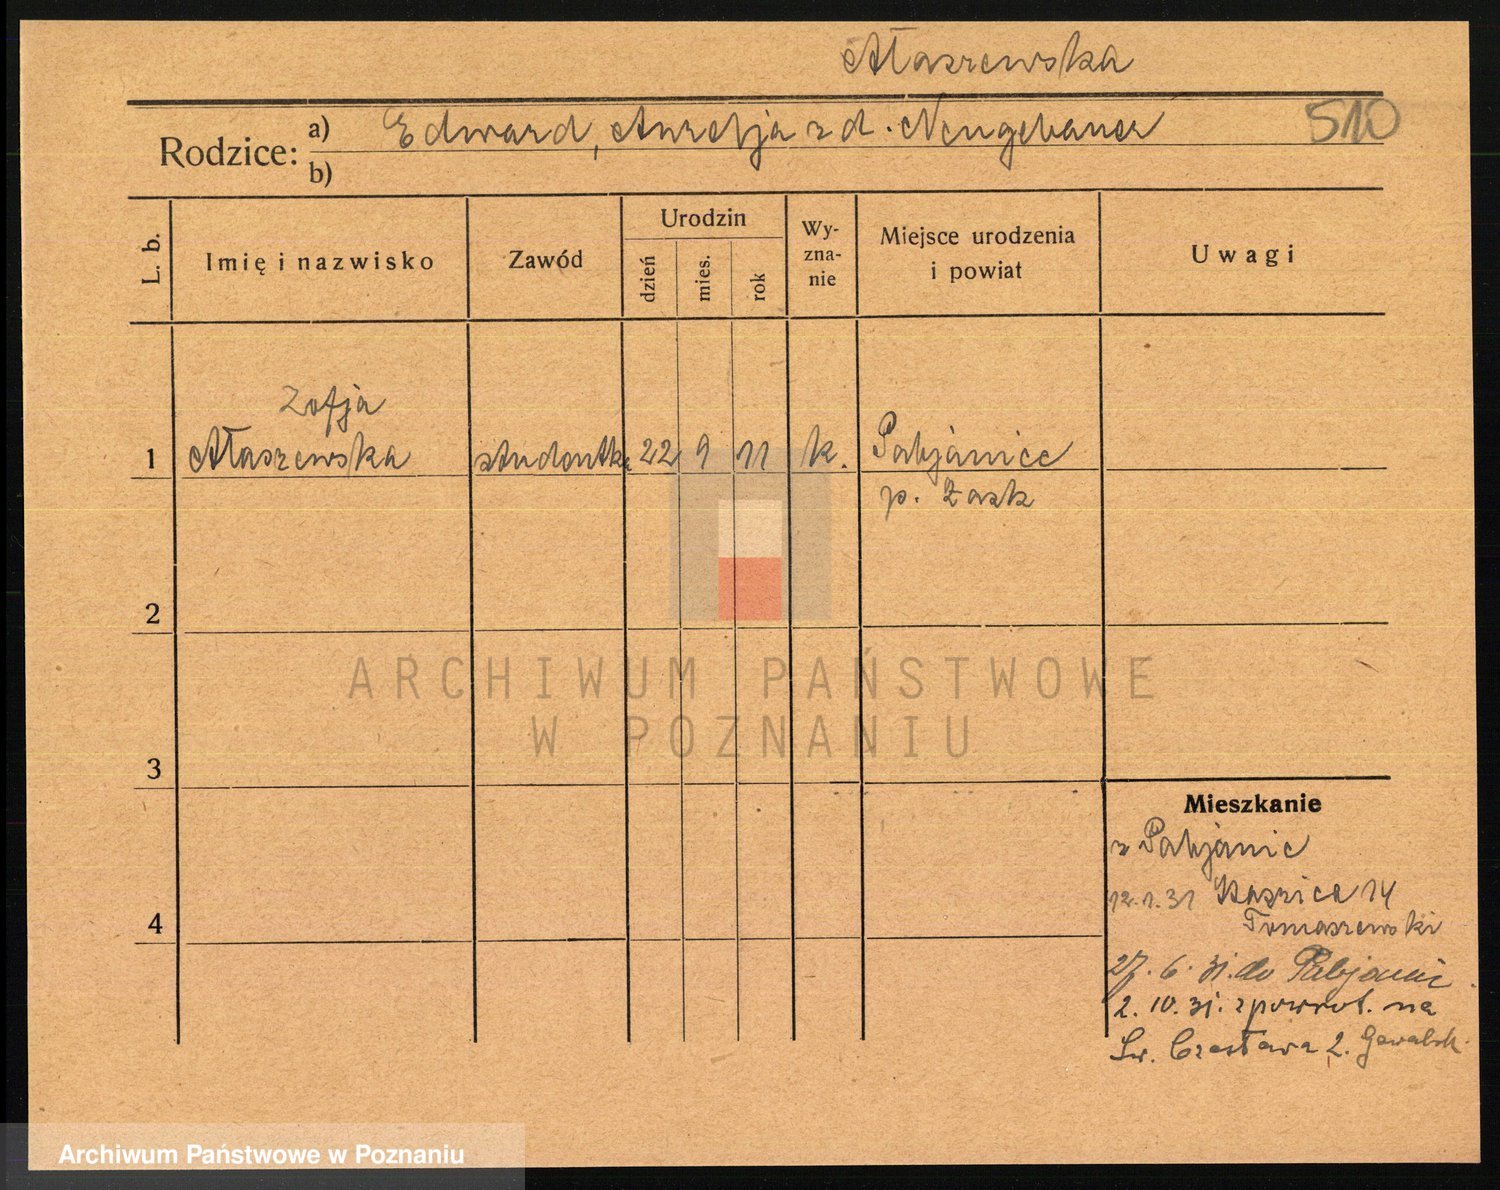 Ałaszewska
Rodzice: a) Edward, Aurelja z d. Neugebauer 510
b)
L. b. Imię i nazwisko Zawód Urodzin dzień mies. rok Wy-zna-nie Miejsce urodzenia i powiat Uwagi
Zofja
1 Ałaszewska studentka 22 9 11 k. Pabjanice
p. Łask
2
3
4
Mieszkanie
z Pabjanic
12.1.31 14
Tomaszewski
27. 6. 31. do Pabjanic
2. 10. 31. z powrot. na
Św. Czesława 2.
ARCHIWUM PAŃSTWOWE
W POZNANIU
Archiwum Państwowe w Poznaniu